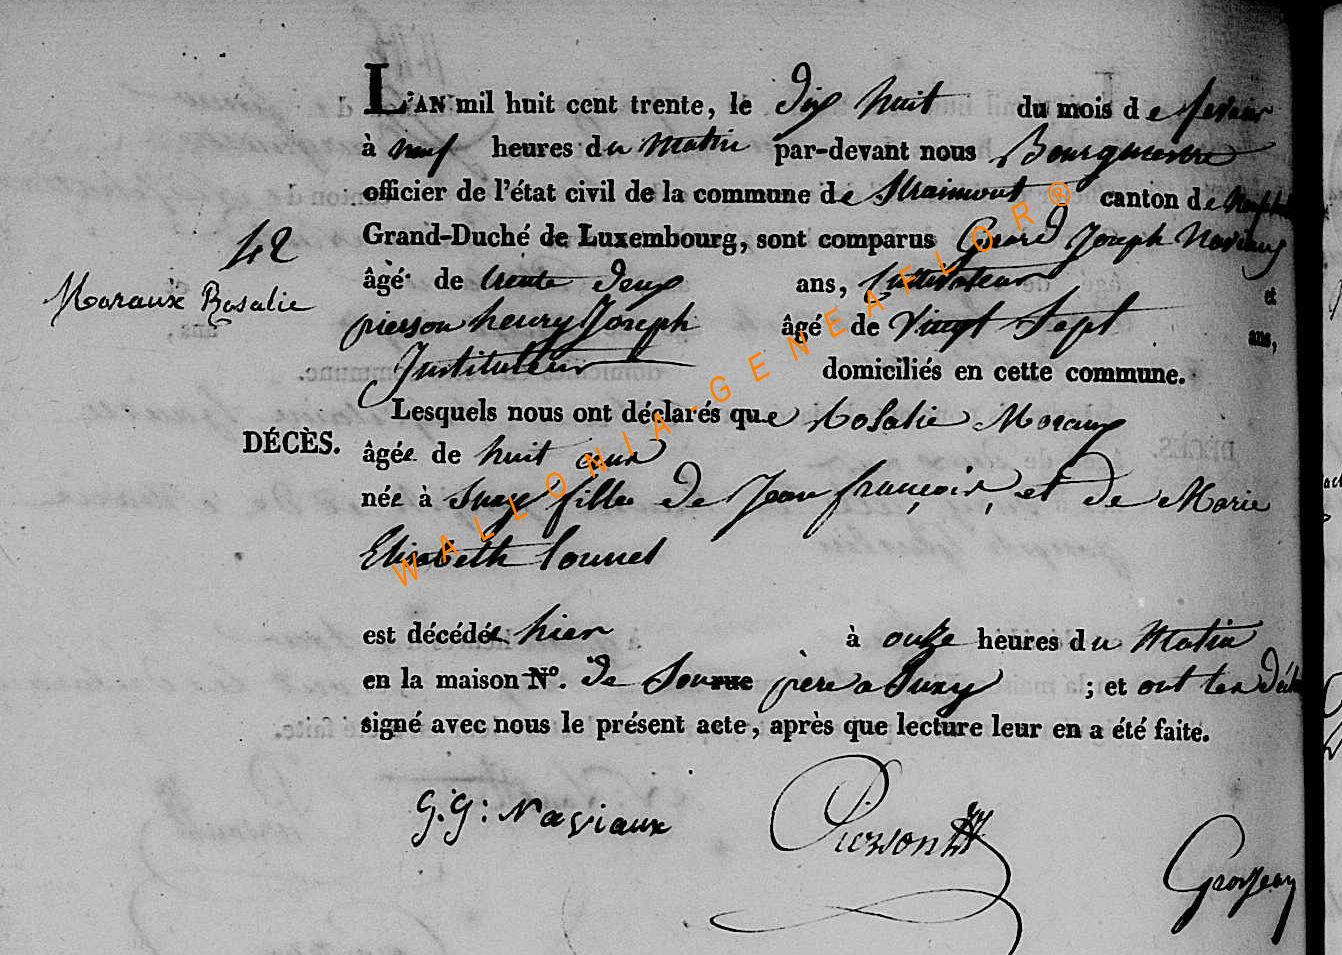 L'AN mil huit cent trente, le dix huit du mois de fevrier
à neuf heures du matin par-devant nous Bourguemestre
officier de l'état civil de la commune de Straimont canton de
42
Grand-Duché de Luxembourg, sont comparus Gerard Joseph Naviaux
âgé de trente deux ans, Cultivateur et
Maraux Rosalie
pierson henry Joseph âgé de Vingt Sept ans,
Instituteur domiciliés en cette commune.
Lesquels nous ont déclarés que Rosalie Maraux
DÉCÈS.
âgée de huit ans
née à Suxy fille de Jean françois, et de Marie
Elisabeth
est décédée hier à onze heures du Matin
en la maison N°. de Son rue père a Suxy ; et ont les
signé avec nous le présent acte, après que lecture leur en a été faite.
G.G: Naviaux Pierson Grosjean
WALLONIA-GENEAFLOR®